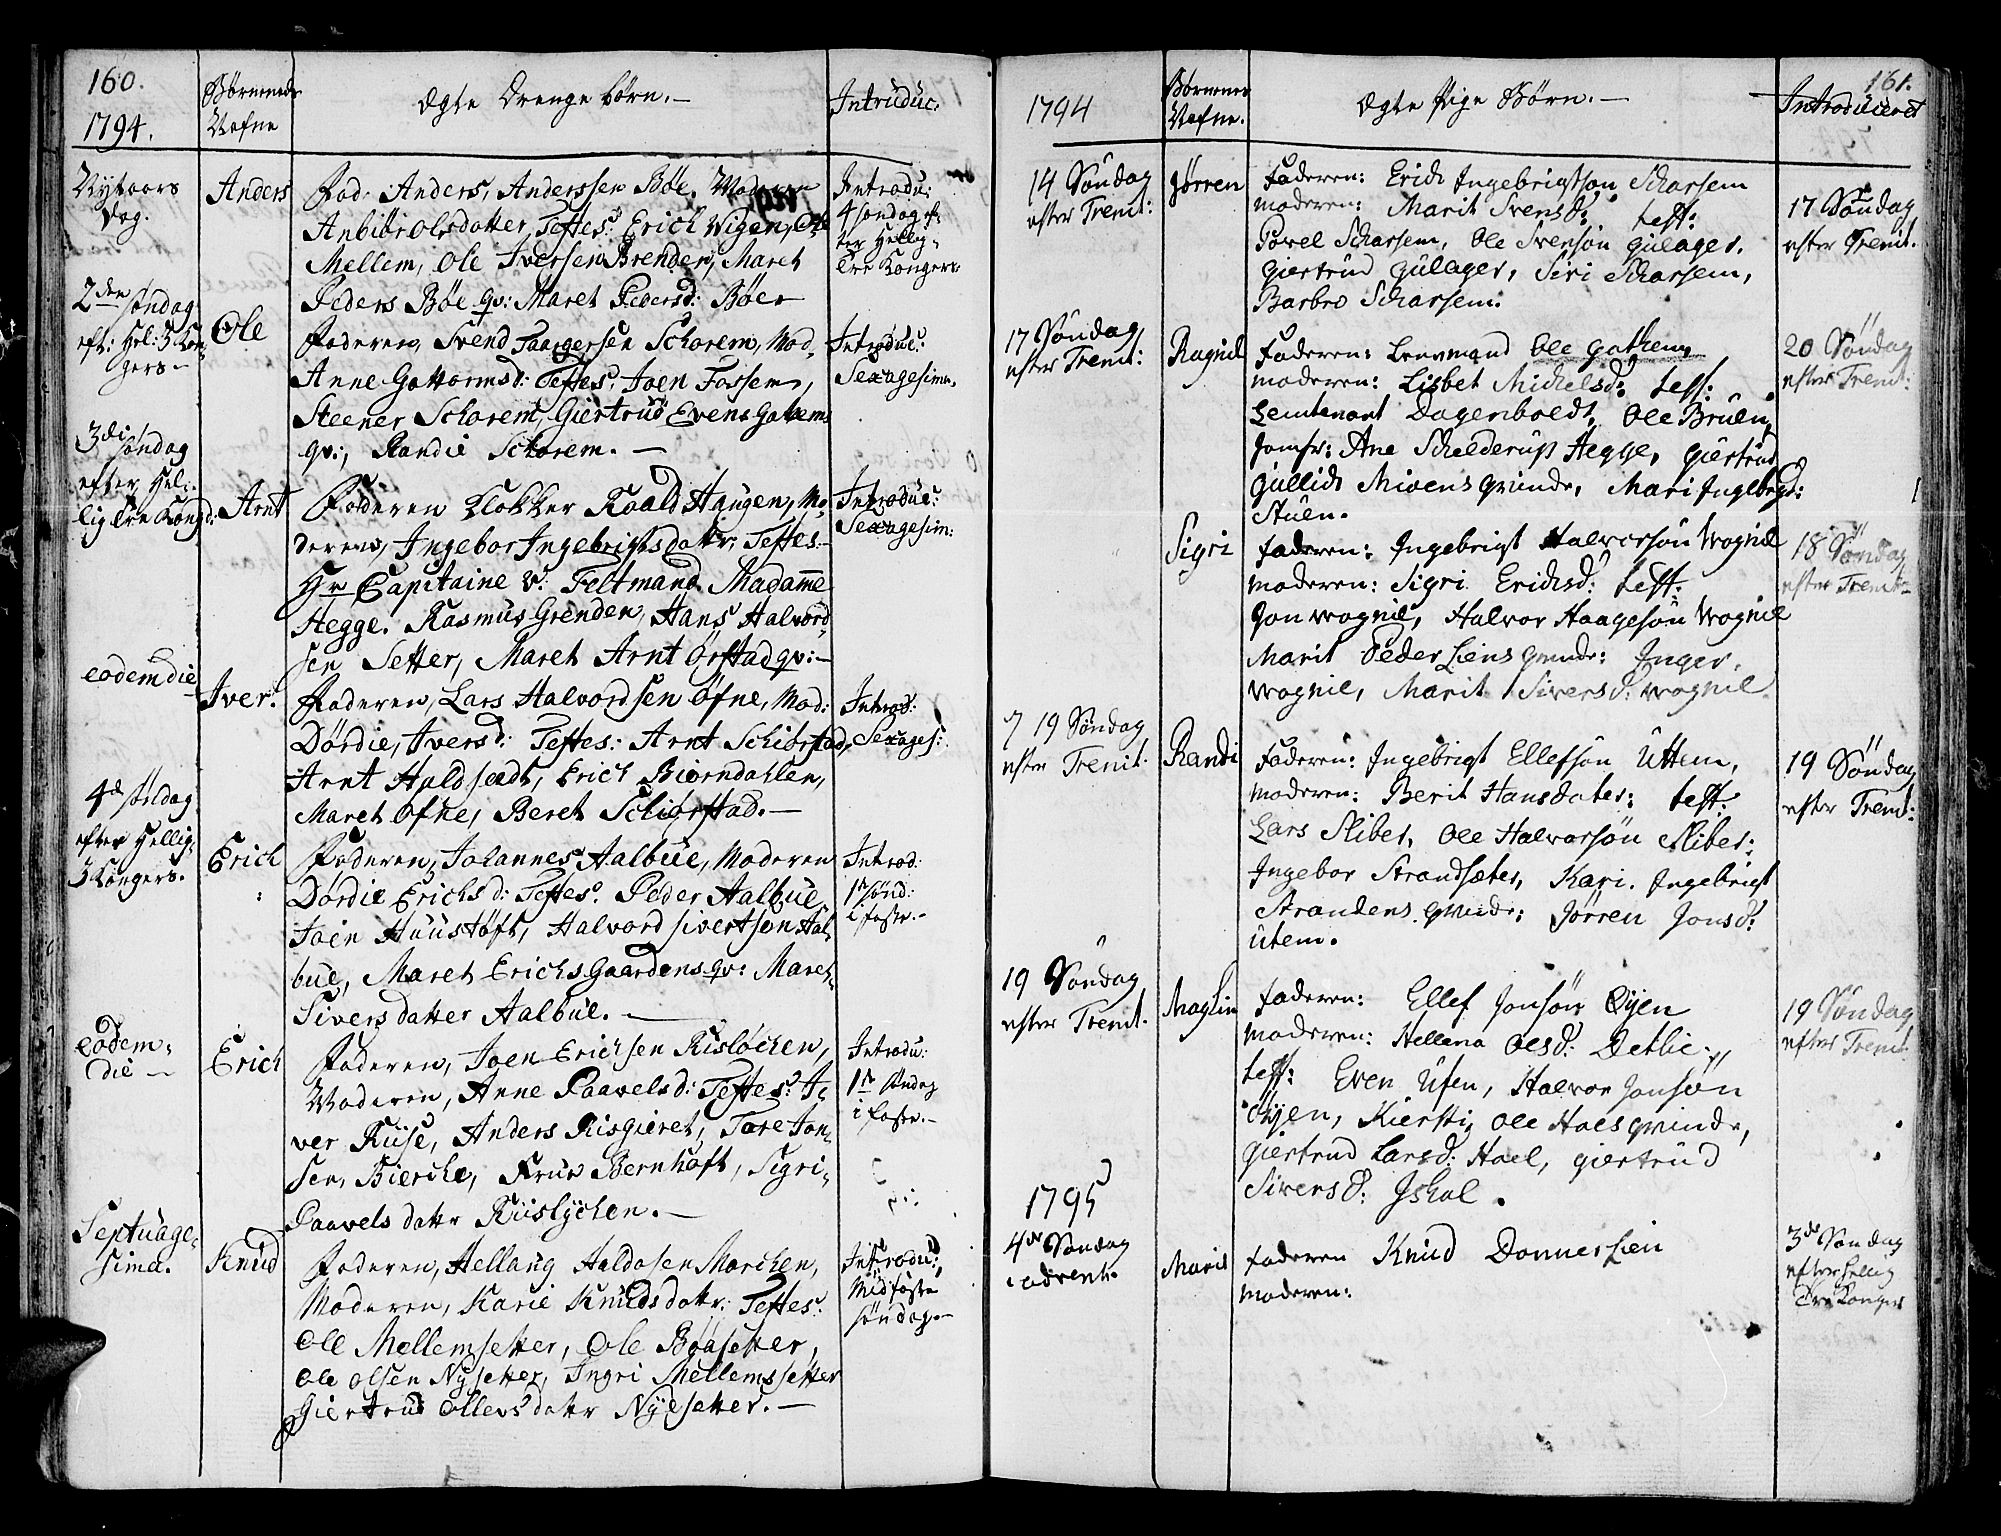 160.
1794.
Børnenes
Nafne
Ægte Drenge børn.—
Introduc.
Nytaars
Dag.
Anders
Fad: Anders, Anderssen Böe, Moderen
Anbiör Olsdatter, Testes: Erich Wigen, Ole
Mellem, Ole Iversen Brenden, Maret
Peders Böe qv: Maret Pedersd: Böer
Introdu:
4 søndag ef-
ter Hellig-
tre Kongers
2den søndag
eft: Hel: 3 Kon-
gers—
Ole
Faderen, Svend Taargersen Schorem, Mod.
Anne Guttormsd: Testes: Joen Fossem,
Steener Schorem, Giertrud Evens Gattem
qv:, Randie Schorem.—
Introduc:
Sexagesima.
3di søndag
efter Hel-
lig tre Kongd:
Arnt
Faderen Klokker Roald Haugen, Mo-
deren, Ingebor Ingebrigtsdattr: Testes
Hr Capitaine v: Feltmand Madamme
Hegge. Rasmus Grenden, Hans Halvord-
sen Setter, Maret Arnt Örstad qv:—
Introduc:
Sexagesim:
eodem die
Iver.
Faderen, Lars Halvordsen Öfne, Mod:
Dördie, Iversd: Testes: Arnt Schiörstad,
Arnt Haldsedt, Erich Biörndahlen,
Maret Öfne, Beret Schiörstad.—
Introd:
Sexages:
4d søndag
efter Hellig-
3 Kongers.
Erich
Faderen, Johannes Aalbue, Moderen
Dördie Erichsd: Testes: Peder Aalbue,
Joen Huustoft, Halvord sivertsen Aal-
bue, Maret Erichs Gaardens qv: Maret
Sivers datter Aalbue.—
Introd:
1te sönd:
i faste.—
Eodem-
die—
Erich
Faderen, Joen Erichsen Risløchen,
Moderen, Anne Paavelsd: Testes: I-
ver Riise, Anders Risgieret, Tore Jon-
sen, Bierche, Frue Bernhoft, Sigri-
Paavels dattr Riislychen.—
Introdu:
1te Söndag
i faste.—
Septuage-
sima.
Knud
Faderen, Hellaug Haldosen Morchen,
Moderen, Karie Knudsdattr: Testes:
Ole Mellemsetter, Ole Böasetter,
Ole Olsen Nysetter, Ingri Mellemssetter
Giertrud Ollevs dattr Nyesetter.—
Introdu:
Midfaste
søndag.—
161.
1794
Børnenes
Nafne.
Ægte Pige Børn.—
Introduceret
14 Søndag
efter Trenit:
Jørren
Faderen: Erich Ingebrigtson Scharsem
moderen: Marit Svensd: test:
Povel Scharsem, Ole Svensön Gulager,
Giertrud Gulager, Siri Scharsem,
Barbro Scharsem.
17 Søndag
efter Trenit.
17 Søndag
efter Trenit:
Ragnil
Faderen: Lensmand Ole Gathem,
moderen: Lisbet Michelsd: test:
Leutenant Dagenboldt, Ole Bruen,
Jomfr: Ane Schelderup Hegge, Giertrud
Gullichs Moens qvinde, Mari Ingebrigtsd:
Stuen.
20 Søndag
efter Trenit:
Sigri
Faderen: Ingebrigt Halvorsön Wognil
moderen: Sigri Erichsd: test:
Jon wognil, Halvor Haagesön Wognil
Marit Peder Liens qvinde: Inger
wognil, Marit Siversd: wognil
18 Søndag
efter Trenit
19 Søndag
efter Trenit.
Randi
Faderen: Ingebrigt Ellefsön Uttem,
moderen: Berit Hansdater: test:
Lars Sliber, Ole Halvorsön Sliber;
Ingebor Strandsæter, Kari Ingebrigt
Strandens qvinde: Jørren Jonsd:
Utem.
19 Søndag
efter Trenit:
19 Søndag
efter Trenit.
Maglin
Faderen: Ellef Jonsön Öyen
moderen: Hellena Olsd: Detlie
test: Even Ufen, Halvor Jonsön
Öyen, Kiersti, Ole Hoels qvinde,
Giertrud Larsd: Hoel, Giertrud
Siversd: Ishol.
19 Søndag
efter Trenit
1795
4de Søndag
i advent.
Marit
Faderen Knud Donnerlien
moderen:
3de Søndag
efter hellig
tre Konger